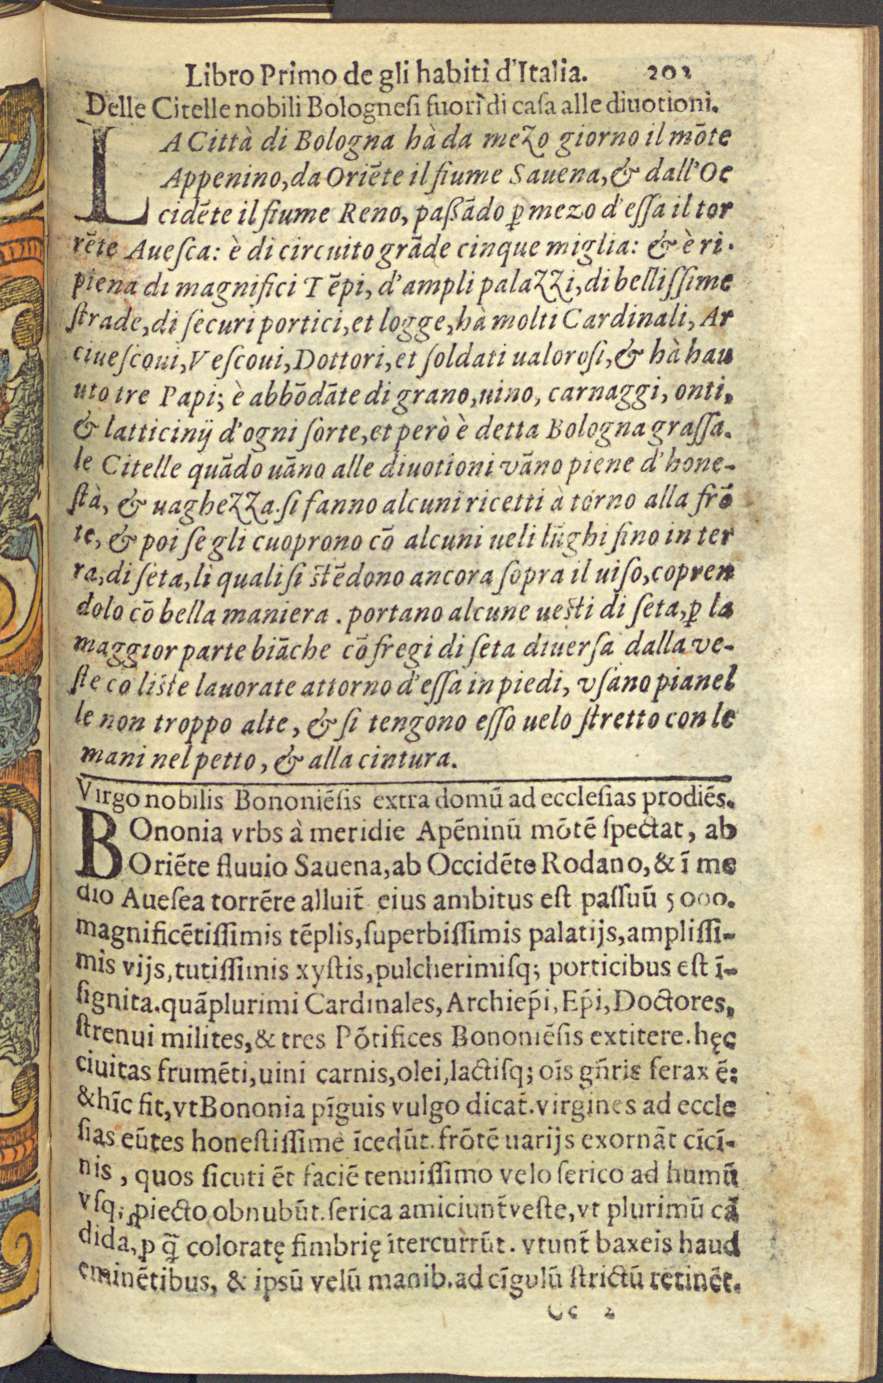 Libro Primo de gli habiti d'Italia. 202
Delle Citelle nobili Bolognesi fuori di casa alle diuotioni.
LA Città di Bologna hà da mezo giorno il mõte
Appenino, da Oriẽte il fiume Sauena, & dall'Oc
cidẽte il fiume Reno, paßãdo ꝑ mezo d'essa il tor
rẽte Auesca: è di circuito grãde cinque miglia: & è ri-
piena di magnifici Tẽpi, d'ampli palazzi, di bellissime
strade, di securi portici, et logge, hà molti Cardinali, Ar
ciuescoui, Vescoui, Dottori, et soldati ualorosi, & hà hau
uto tre Papi; è abbõdãte di grano, uino, carnaggi, onti,
& latticinij d'ogni sorte, et però è detta Bologna grassa.
le Citelle quãdo uãno alle diuotioni vãno piene d'hone-
stà, & uaghezza. si fanno alcuni ricetti à torno alla frõ
te, & poi se gli cuoprono cõ alcuni ueli lũghi fino in ter
ra, di seta, li quali si stẽdono ancora sopra il uiso, copren
dolo cõ bella maniera. portano alcune uesti di seta, ꝑ la
maggior parte biãche cõ fregi di seta diuersa dalla ve-
ste cõ liste lauorate attorno d'essa in piedi, vsano pianel
le non troppo alte, & si tengono esso uelo stretto con le
mani nel petto, & alla cintura.
Virgo nobilis Bononiẽsis extra domũ ad ecclesias prodiẽs.
BOnonia vrbs à meridie Apẽninũ mõtẽ spectat, ab
Oriẽte fluuio Sauena, ab Occidẽte Rodano, & ĩ me
dio Auesea torrẽre alluit̃ eius ambitus est passuũ 5000.
magnificẽtissimis tẽplis, superbissimis palatijs, amplissi-
mis vijs, tutissimis xystis, pulcherimisq; porticibus est ĩ-
signita. quãplurimi Cardinales, Archiep̃i, Ep̃i, Doctores,
strenui milites, & tres Põtifices Bononiẽsis extitere. hęc
ciuitas frumẽti, uini carnis, olei, lactisq; oĩs gñris ferax ẽ:
& hĩc fit, vt Bononia pĩguis vulgo dicat̃. virgines ad eccle
sias eũtes honestissime ĩcedũt. frõtẽ uarijs exornãt cĩcĩ-
nis, quos sicuti ẽt faciẽ tenuissimo velo serico ad humũ
vsq; ꝓiecto obnubũt. serica amiciunt̃ veste, vt plurimũ cã
dida, ꝑ q̃ coloratę fimbrię itercurrũt. vtunt̃ baxeis haud
eminẽtibus, & ipsũ velũ manib. ad cĩgulũ strictũ retinẽt.
Cc 2